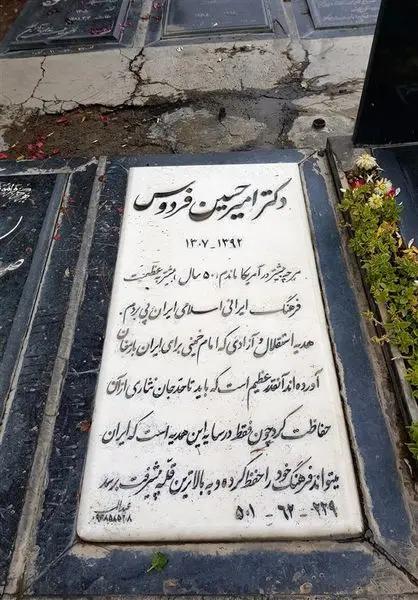 دکتر امیرحسین فردوس
۱۳۰۷-۱۳۹۲
هر چه بیشتر در آمریکا ماندم، ۵۰ سال، بیشتر به عظمت
فرهنگ ایرانی اسلامی ایران پی بردم.
هدیه استقلال و آزادی که امام خمینی برای ایران بارمغان
آورده اند آنقدر عظیم است که باید تا حد جان نثاری از آن
حفاظت کرد چون فقط در سایه این هدیه است که ایران
میتواند فرهنگ خود را حفظ کرده و به بالاترین قله پیشرفت برسد
۵۰۱-۶۲-۲۲۹